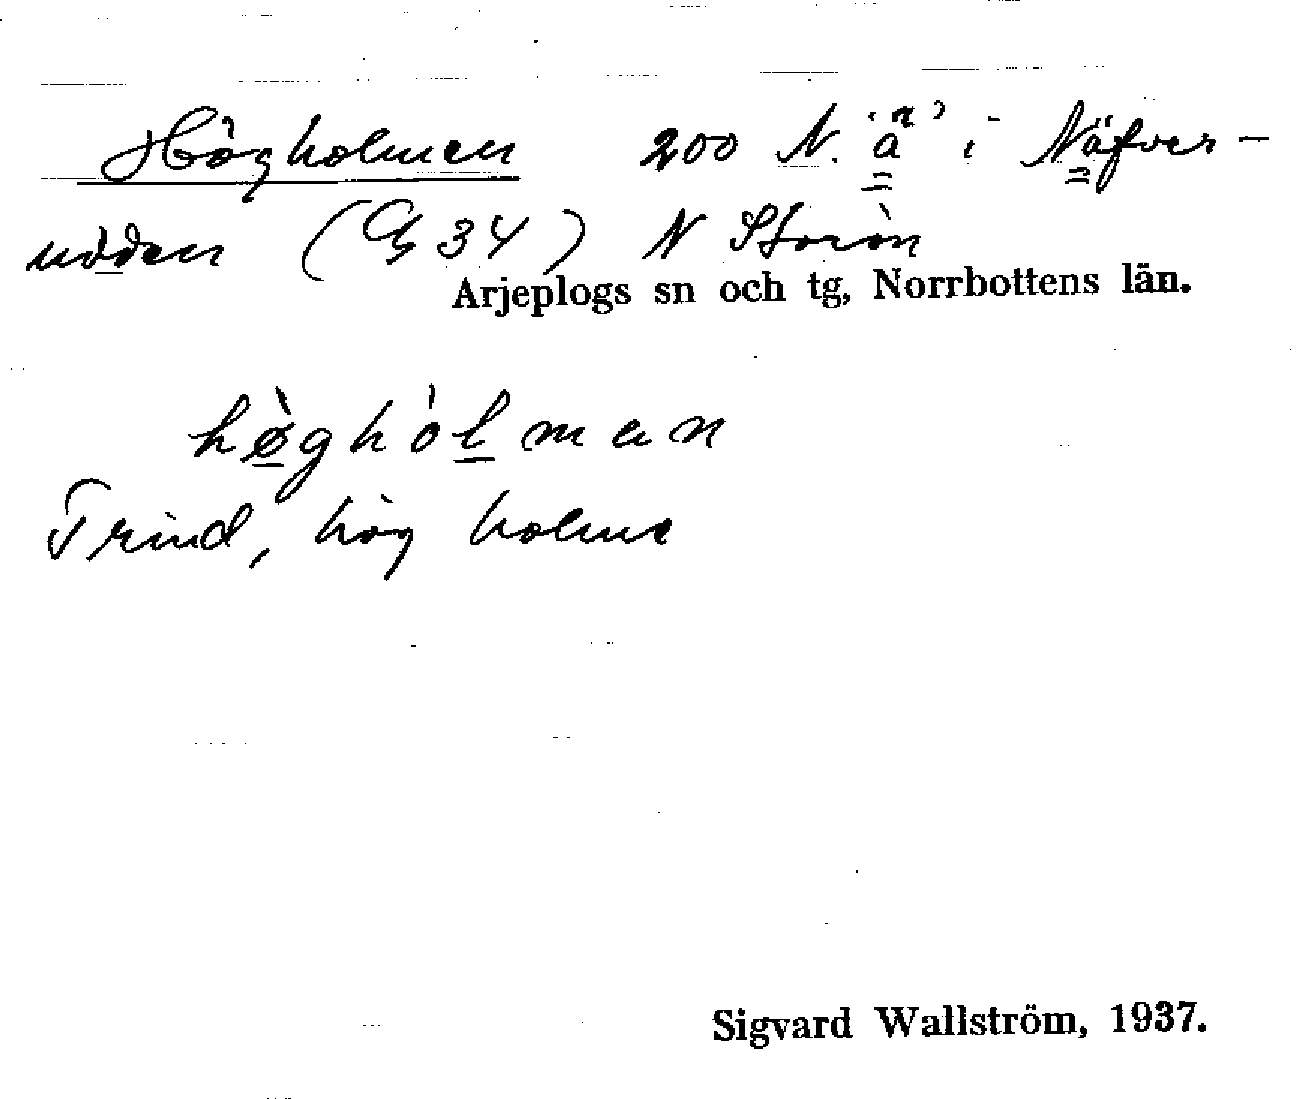 Högholmen 200 N. "ä" i Näfver-
udden (G 34) N Storön
Arjeplogs sn och tg, Norrbottens län.
høghólman
Trind, hög holme
Sigvard Wallström, 1937.